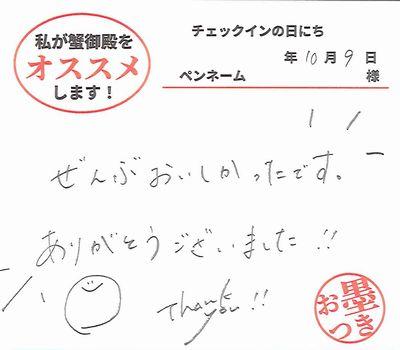 私が蟹御殿を
オススメ
します！
チェックインの日にち
年10月9日
ペンネーム 様
ぜんぶおいしかったです。
ありがとうございました!!
Thank you!!
お墨つき